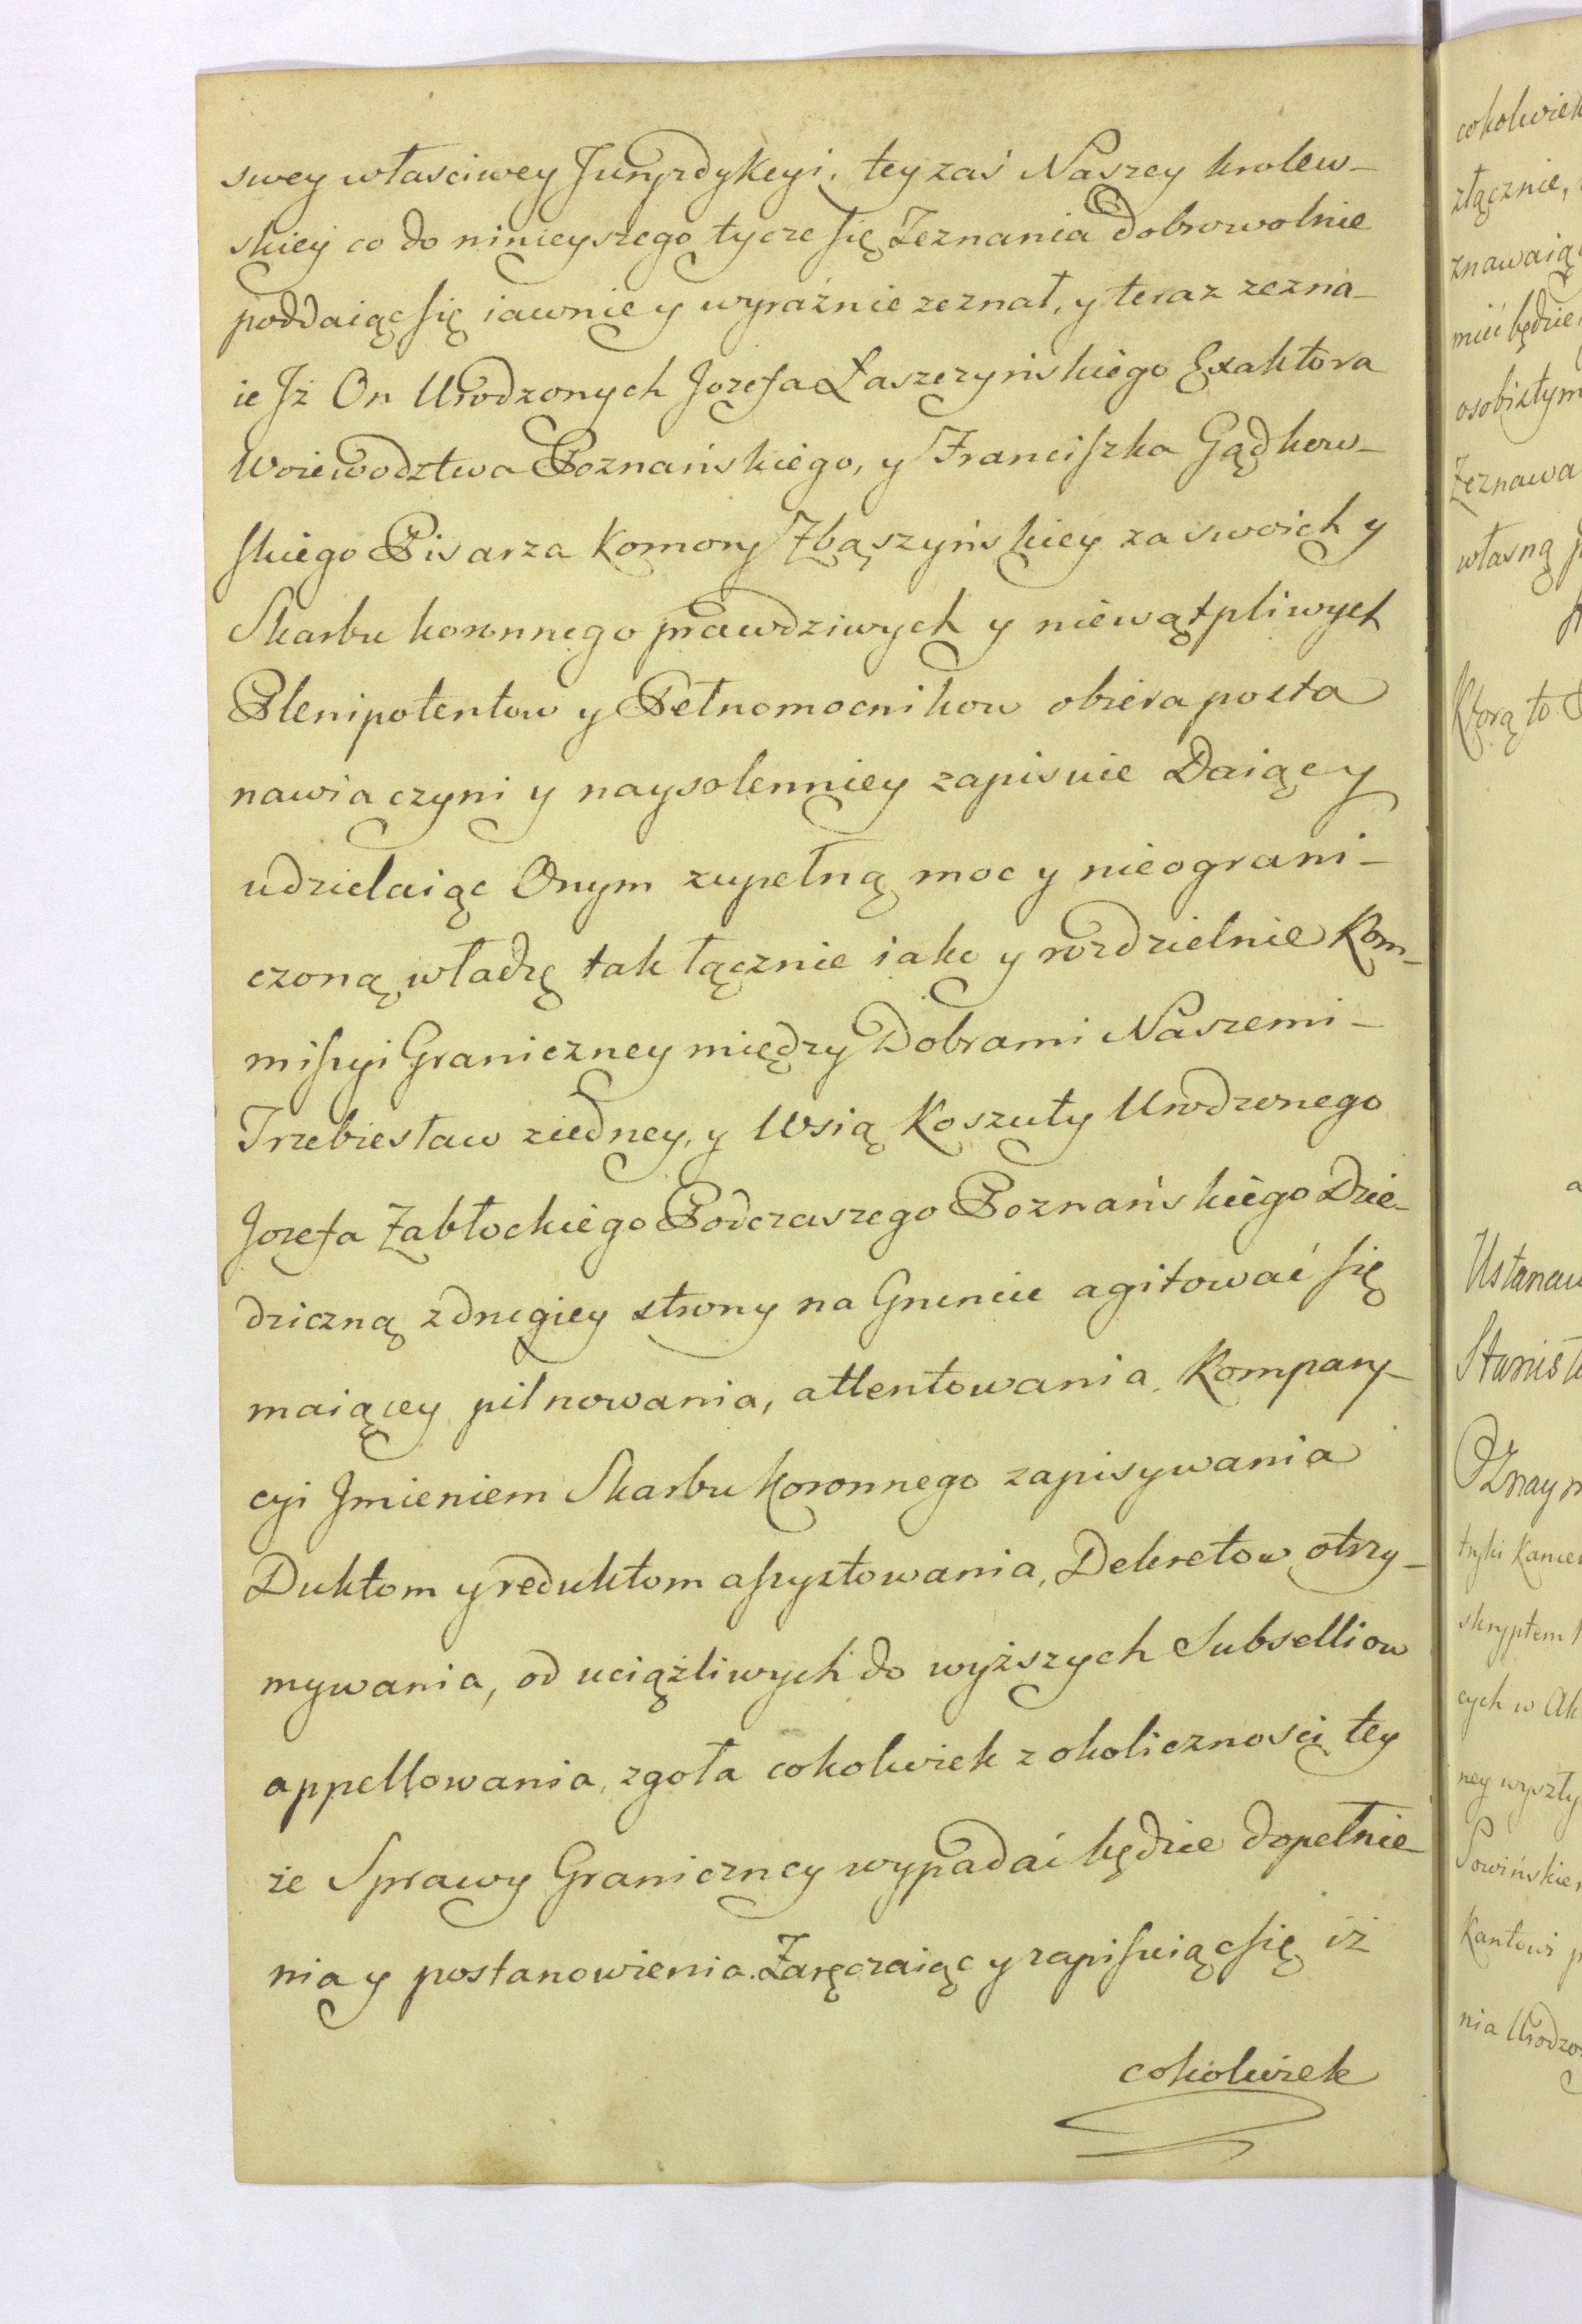 swey własciwey Juryzdykcyi, tey zaś Naszey krolew-
skiey co do ninieyszego tycze się Zeznania dobrowolnie
poddaiąc się iawnie y wyraźnie zeznał, y teraz zezna-
ie Jż On Urodzonych Jozefa Łaszczyńskiego Exaktora
Woiewodztwa Poznańskiego, y Franciszka Gądkow-
skiego Pisarza Komory Zbąszyńskiey za swoich y
Skarbu koronnego prawdziwych y niewątpliwych
Plenipotentow y Pełnomocnikow obiera posta
nawia czyni y naysolenniey zapisuie Daiąc y
udzielaiąc Onym zupełną moc y nieograni-
czoną władzę tak łącznie iako y rozdzielnie Kom-
missyi Graniczney między Dobrami Naszemi-
Trzebiesław ziedney, y Wsią Koszuty Urodzonego
Jozefa Zabłockiego Podczaszego Poznańskiego Dzie-
dziczną z drugiey strony na Gruncie agitować się
maiącey pilnowania, attentowania, Kompary-
cyi Jmieniem Skarbu Koronnego zapisywania
Duktom y reduktom assystowania, Dekretow otrzy-
mywania, od uciążliwych do wyższych Subselliow
appellowania, zgoła cokolwiek z okoliczności tey
że Sprawy Graniczney wypadać będzie dopełnie-
nia y postanowienia. Zaręczaiąc y zapisuiąc się iż
cokolwiek
cokolwiek
złącznie,
znawaią
mić będzie
osobistym
Zeznawa
własną
Ktorą to
Ustanaw
Stanisł
Oznaym
skryptem
cych w Ak
ney wyszły
Sowińskie
Kantowi
nia Urodzo